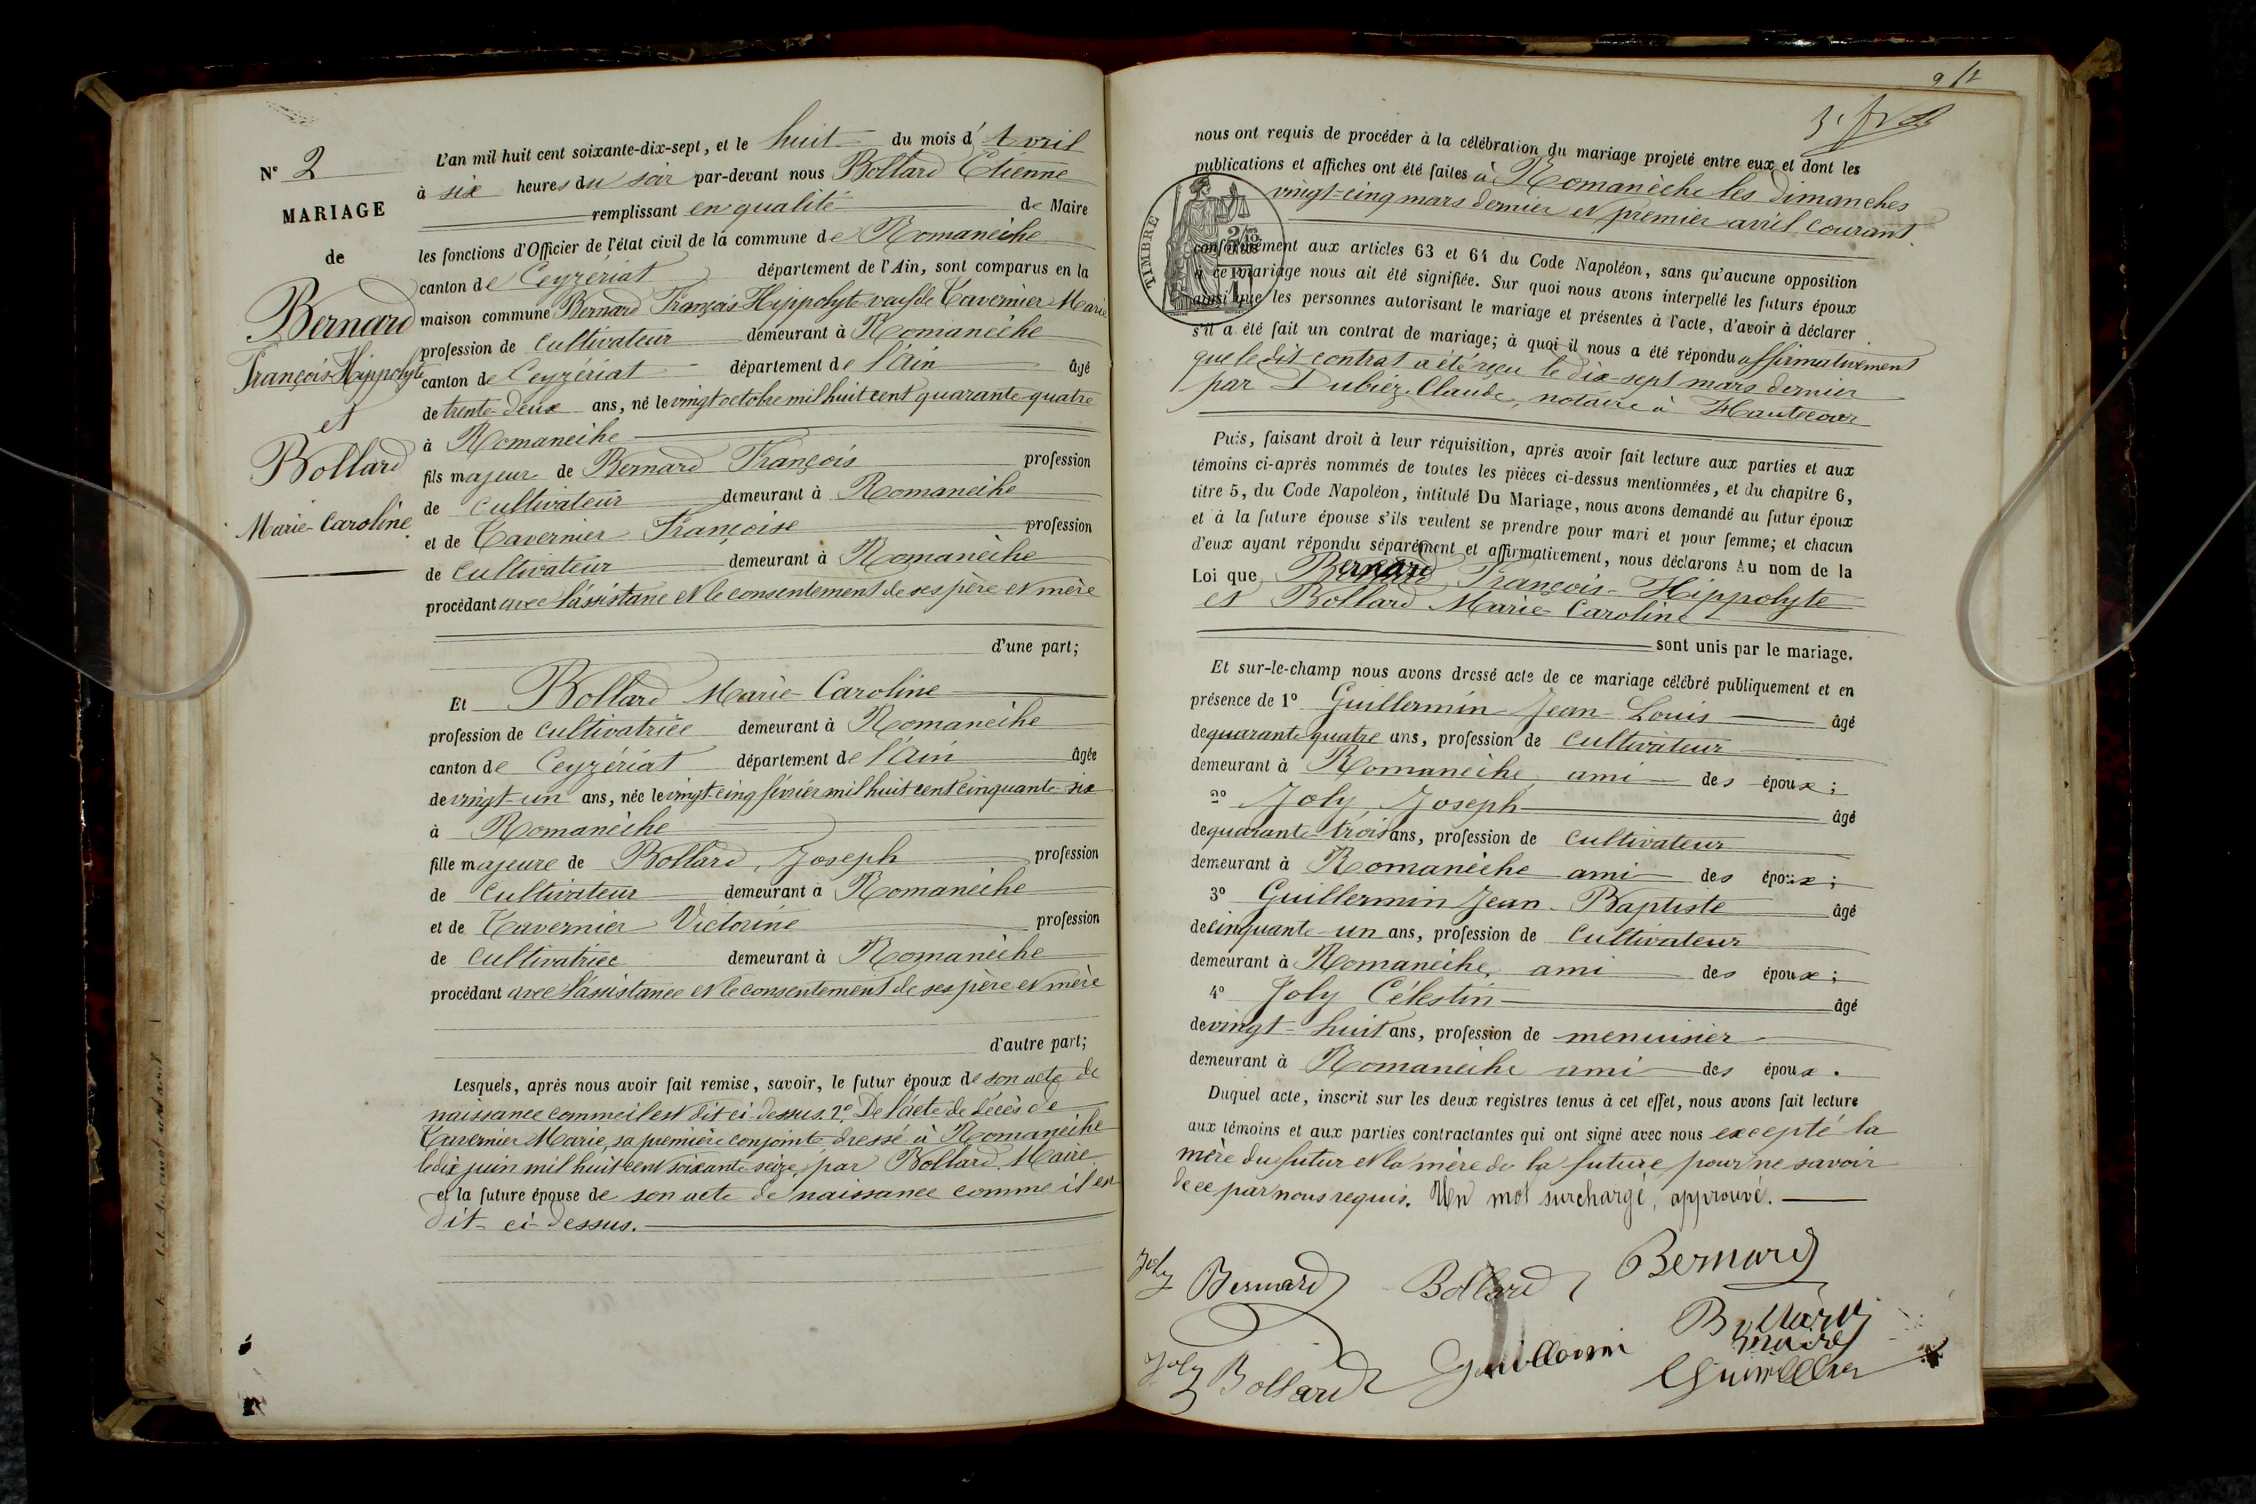 N° 2
MARIAGE
de
Bernard
François-Hippolyte
et
Bollard
Marie-Caroline
L'an mil huit cent soixante-dix-sept, et le huit du mois d'Avril
à six heures du soir par-devant nous Bollard Etienne
remplissant en qualité de Maire
les fonctions d'Officier de l'état civil de la commune de Romanèche
canton de Ceyzériat département de l'Ain, sont comparus en la
maison commune Bernard François-Hippolyte veuf de Tavernier Marie
profession de cultivateur demeurant à Romanèche
canton de Ceyzériat département de l'Ain âgé
de trente-deux ans, né le vingt octobre mil huit cent quarante-quatre
à Romanèche
fils majeur de Bernard François profession
de cultivateur demeurant à Romanèche
et de Tavernier Françoise profession
de cultivateur demeurant à Romanèche
procédant avec l'assistance et le consentement de ses père et mère
d'une part;
Et Bollard Marie-Caroline
profession de cultivatrice demeurant à Romanèche
canton de Ceyzériat département de l'Ain âgée
de vingt-un ans, née le vingt-cinq février mil huit cent cinquante-six
à Romanèche
fille majeure de Bollard, Joseph profession
de cultivateur demeurant à Romanèche
et de Tavernier Victorine profession
de cultivatrice demeurant à Romanèche
procédant avec l'assistance et le consentement de ses père et mère
d'autre part;
Lesquels, après nous avoir fait remise, savoir, le futur époux de son acte de
naissance comme il est dit ci-dessus. 2° De l'acte de décès de
Tavernier Marie, sa première conjointe dressé à Romanèche
le dix juin mil huit cent soixante-seize, par Bollard, Maire
et la future épouse de son acte de naissance comme il est
dit ci-dessus.
nous ont requis de procéder à la célébration du mariage projeté entre eux et dont les
publications et affiches ont été faites à Romanèche les dimanches
vingt-cinq mars dernier et premier avril courant.
TIMBRE
conformément aux articles 63 et 64 du Code Napoléon, sans qu'aucune opposition
à ce mariage nous ait été signifiée. Sur quoi nous avons interpellé les futurs époux
ainsi que les personnes autorisant le mariage et présentes à l'acte, d'avoir à déclarer
s'il a été fait un contrat de mariage; à quoi il nous a été répondu affirmativement
que le dit contrat a été reçu le dix-sept mars dernier
par Dubiez Claude, notaire à Hautecour
Puis, faisant droit à leur réquisition, après avoir fait lecture aux parties et aux
témoins ci-après nommés de toutes les pièces ci-dessus mentionnées, et du chapitre 6,
titre 5, du Code Napoléon, intitulé Du Mariage, nous avons demandé au futur époux
et à la future épouse s'ils veulent se prendre pour mari et pour femme; et chacun
d'eux ayant répondu séparément et affirmativement, nous déclarons Au nom de la
Loi que Bernard François-Hippolyte
et Bollard Marie-Caroline
sont unis par le mariage.
Et sur-le-champ nous avons dressé acte de ce mariage célébré publiquement et en
présence de 1° Guillermin Jean-Louis âgé
de quarante-quatre ans, profession de cultivateur
demeurant à Romanèche, ami des époux;
2° Joly Joseph âgé
de quarante-trois ans, profession de cultivateur
demeurant à Romanèche ami des époux;
3° Guillermin Jean-Baptiste âgé
de cinquante-un ans, profession de cultivateur
demeurant à Romanèche, ami des époux;
4° Joly Célestin âgé
de vingt-huit ans, profession de menuisier
demeurant à Romanèche ami des époux.
Duquel acte, inscrit sur les deux registres tenus à cet effet, nous avons fait lecture
aux témoins et aux parties contractantes qui ont signé avec nous excepté la
mère du futur et la mère de la future pour ne savoir
de ce par nous requis. Un mot surchargé, approuvé.
Joly Bernard Bollard Bernard
Bollard
maire
Joly Bollard